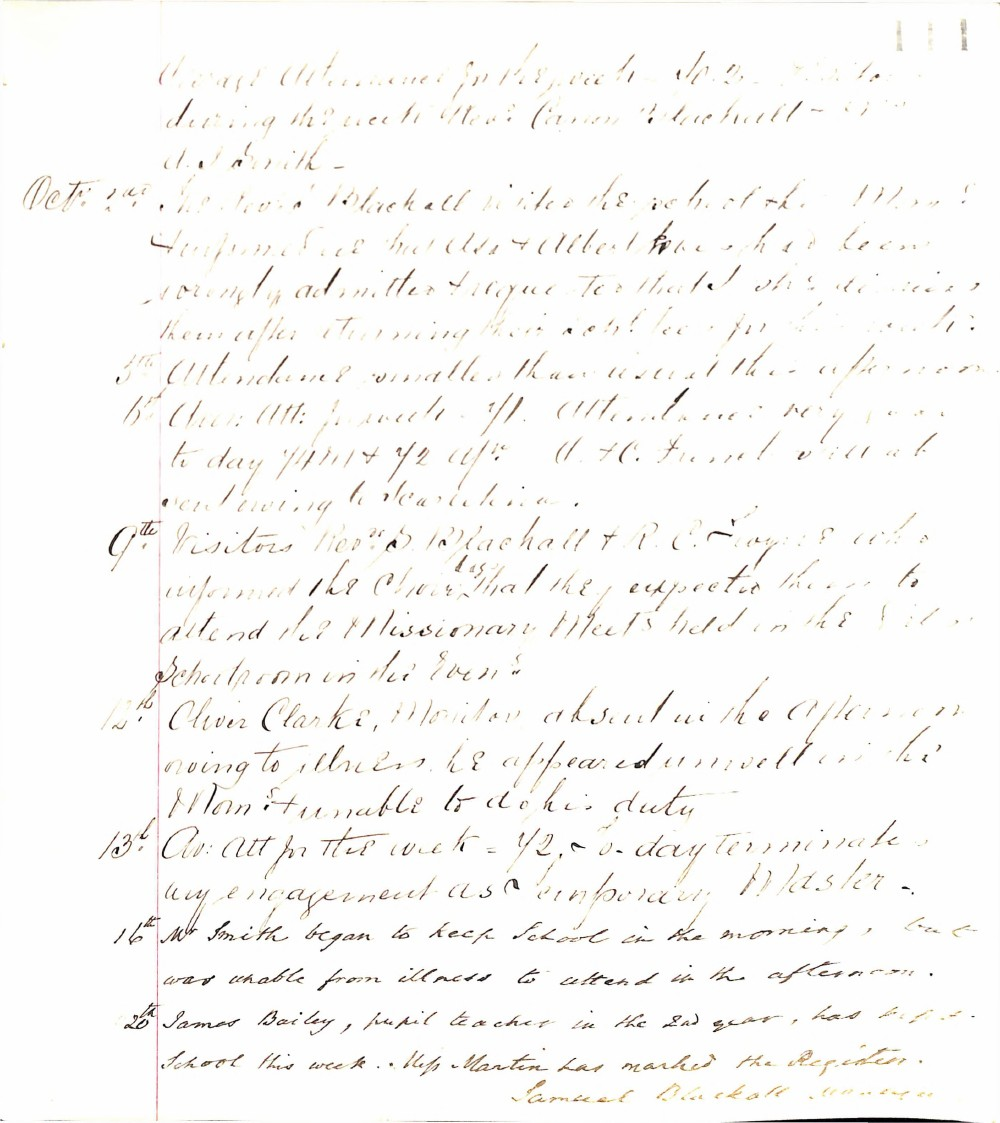 111
Average Attendance for the week - 70.2 -
during the week Revd. Canon Blackall -
A. J. Smith -
Oct. 2nd. The Revd. Blackall visited the school this Morng
& informed me that Ada & Albert had been
wrongly admitted & requested that I shd. dismiss
them after returning their schl. fees for this week.
5th. Attendance smaller than usual this afternoon
6th. Aver. Att: for week - 71. Attendance very good
to day 74 M & 72 Afn. A. & C. still ab
sent owing to Scarlatina.
9th. Visitors Revds. S. Blackall & R. C. who
informed the Choir boys that they expected them to
attend the Missionary Meetg held in the
Schoolroom in the Eveng.
12th. Oliver Clarke, Monitor, absent in the Afternoon
owing to illness. he appeared unwell in the
Morng. & unable to do his duty
13th. Av: att for the week = 72. To-day terminates
my engagement as Temporary Master -.
16th Mr Smith began to keep School in the morning, but
was unable from illness to attend in the afternoon.
20th James Bailey, pupil teacher in the 2nd year, has kept
School this week. Miss Martin has marked the Register.
Samuel Blackall